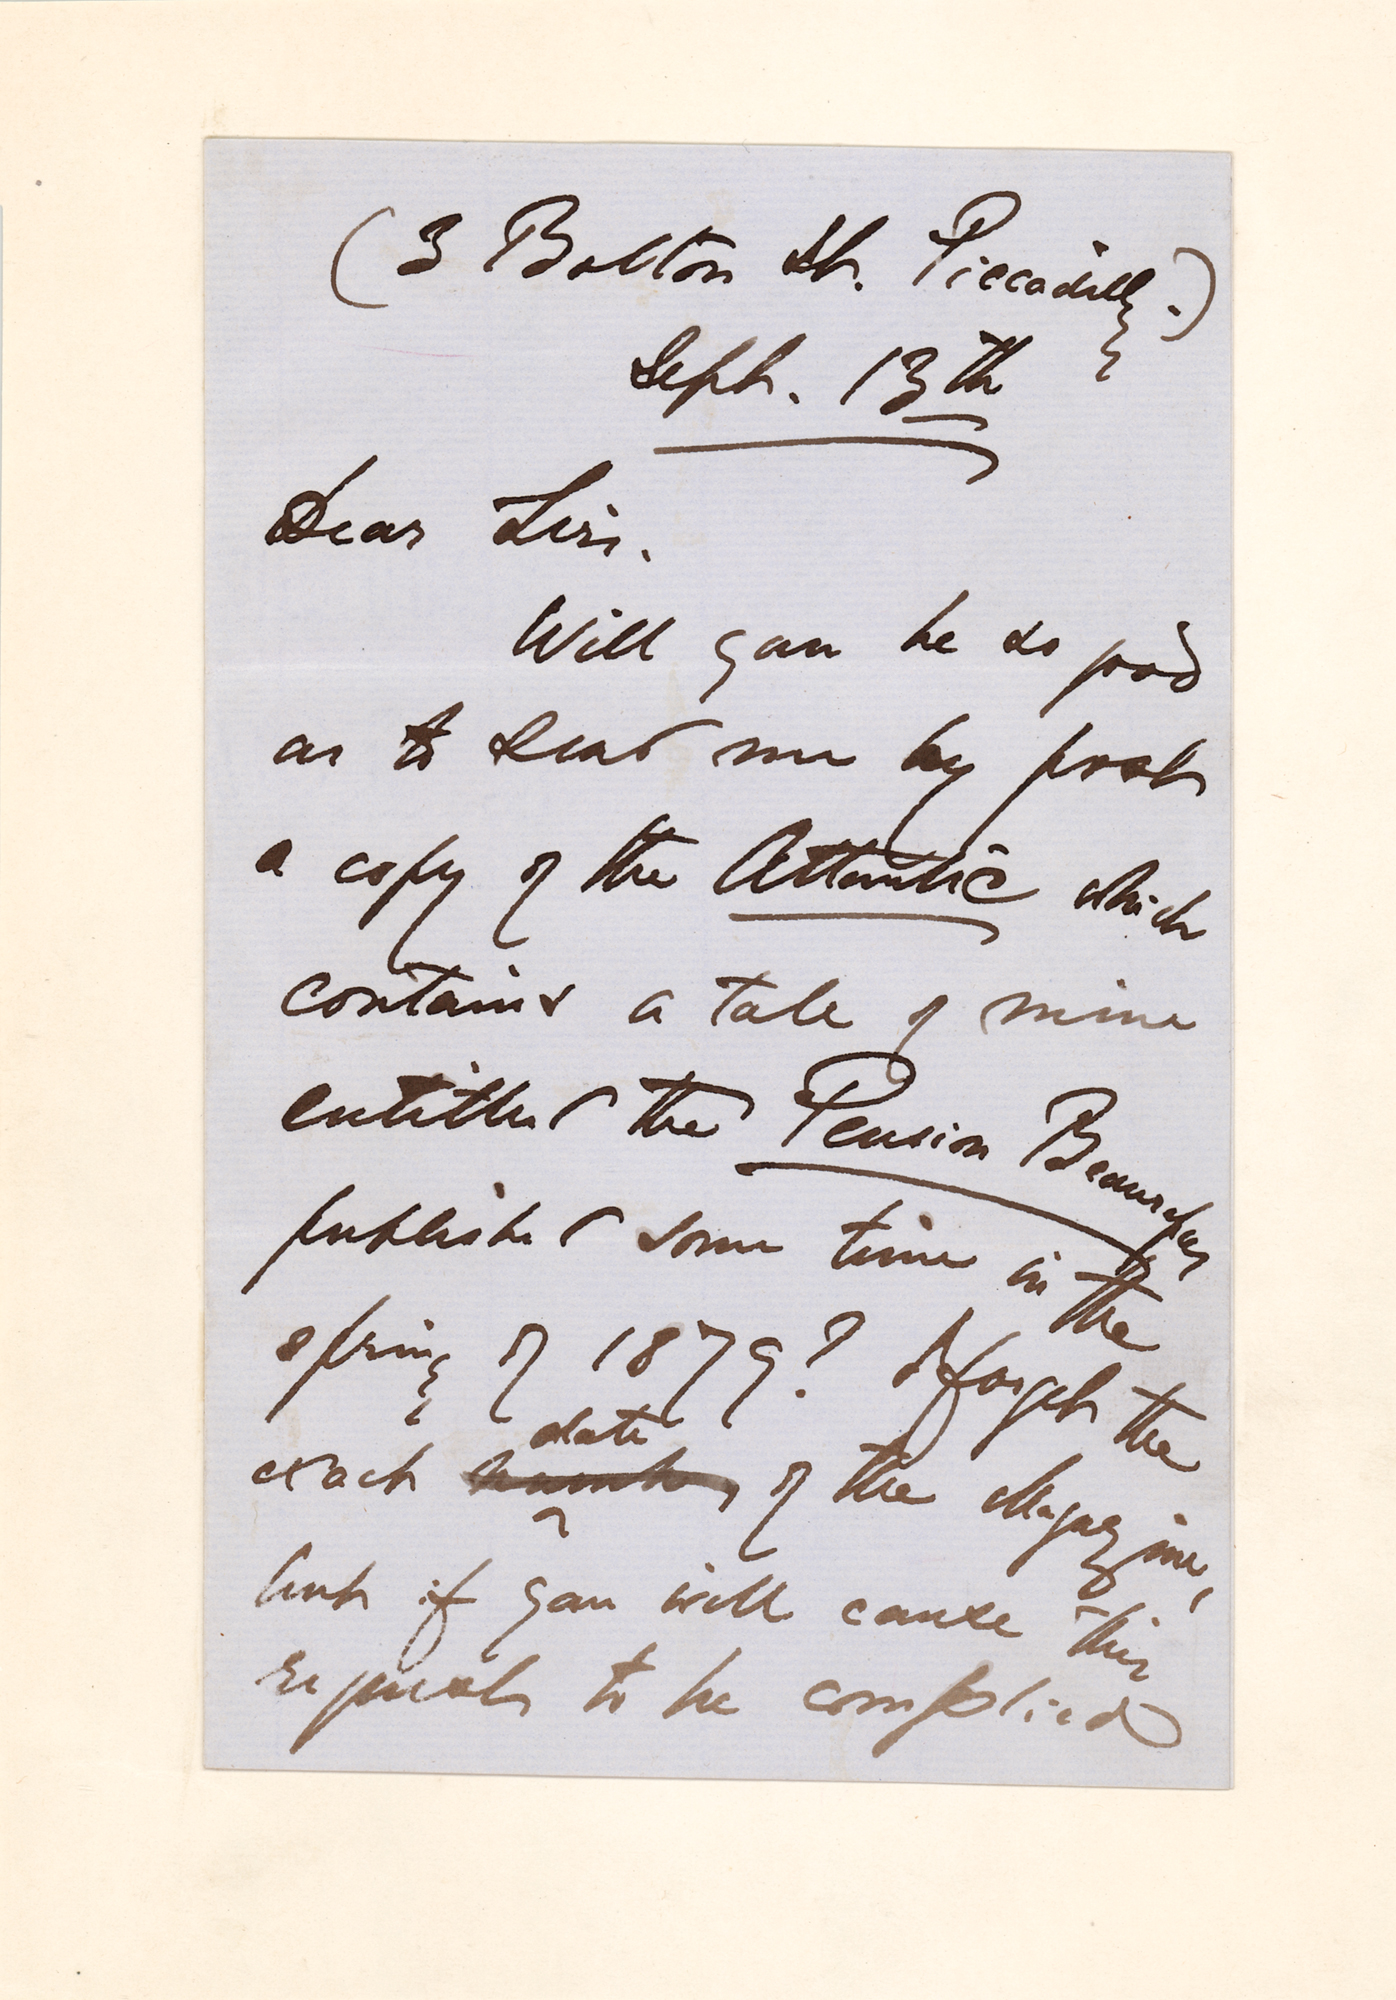 (3 Bolton St. Piccadilly.)
Sept. 13th
Dear Sir.
Will you be so good
as to send me by post
a copy of the Atlantic which
contains a tale of mine
entitled the Pension Beaurepas
published some time in the
spring of 1879? I forget the
date
exact number of the Magazine,
but if you will cause this
request to be complied